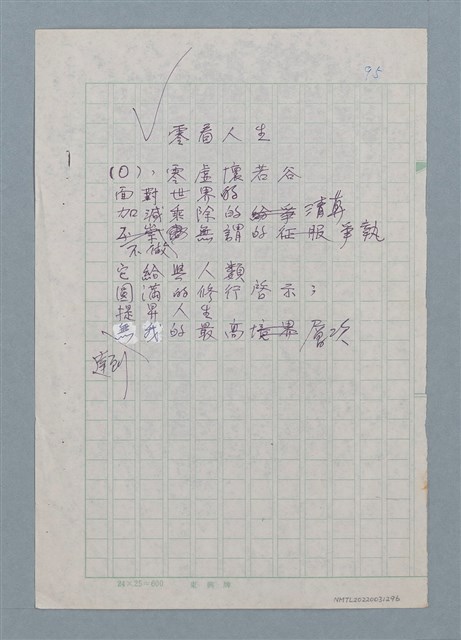 95
零看人生
(0)，零虛壞若谷
面對世界的
加減乘除的給爭清算
不做無謂的征服爭執
它給與人類
圓滿的修行啓示；
提昇人生
無我的最高境界層次
達到
24×25=600
NMTL20220031296